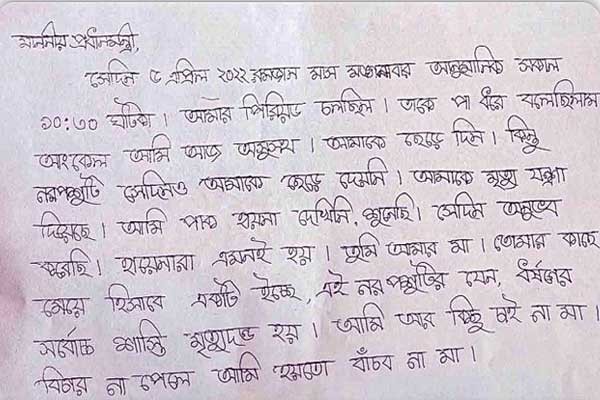 মাননীয় প্রধানমন্ত্রী,
সেদিন ৫ এপ্রিল ২০২২ রমজান মাস মঙ্গলবার আনুমানিক সকাল
১০:৩০ ঘটিকা। আমার পিরিয়ড চলছিল। তাকে পা ধরে বলেছিলাম
আংকেল আমি আজ অসুস্থ। আমাকে ছেড়ে দিন। কিন্তু
নরপশুটি সেদিনও আমাকে ছেড়ে দেয়নি। আমাকে মৃত্যু যন্ত্রণা
দিয়েছে। আমি পাক হায়না দেখিনি, শুনেছি। সেদিন অনুভব
করেছি। হায়েনারা এমনই হয়। তুমি আমার মা। তোমার কাছে
মেয়ে হিসাবে একটি ইচ্ছে, এই নরপশুটির যেন, ধর্ষণের
সর্বোচ্চ শাস্তি মৃত্যুদন্ড হয়। আমি আর কিছু চাই না মা।
বিচার না পেলে আমি হয়তো বাঁচব না মা।